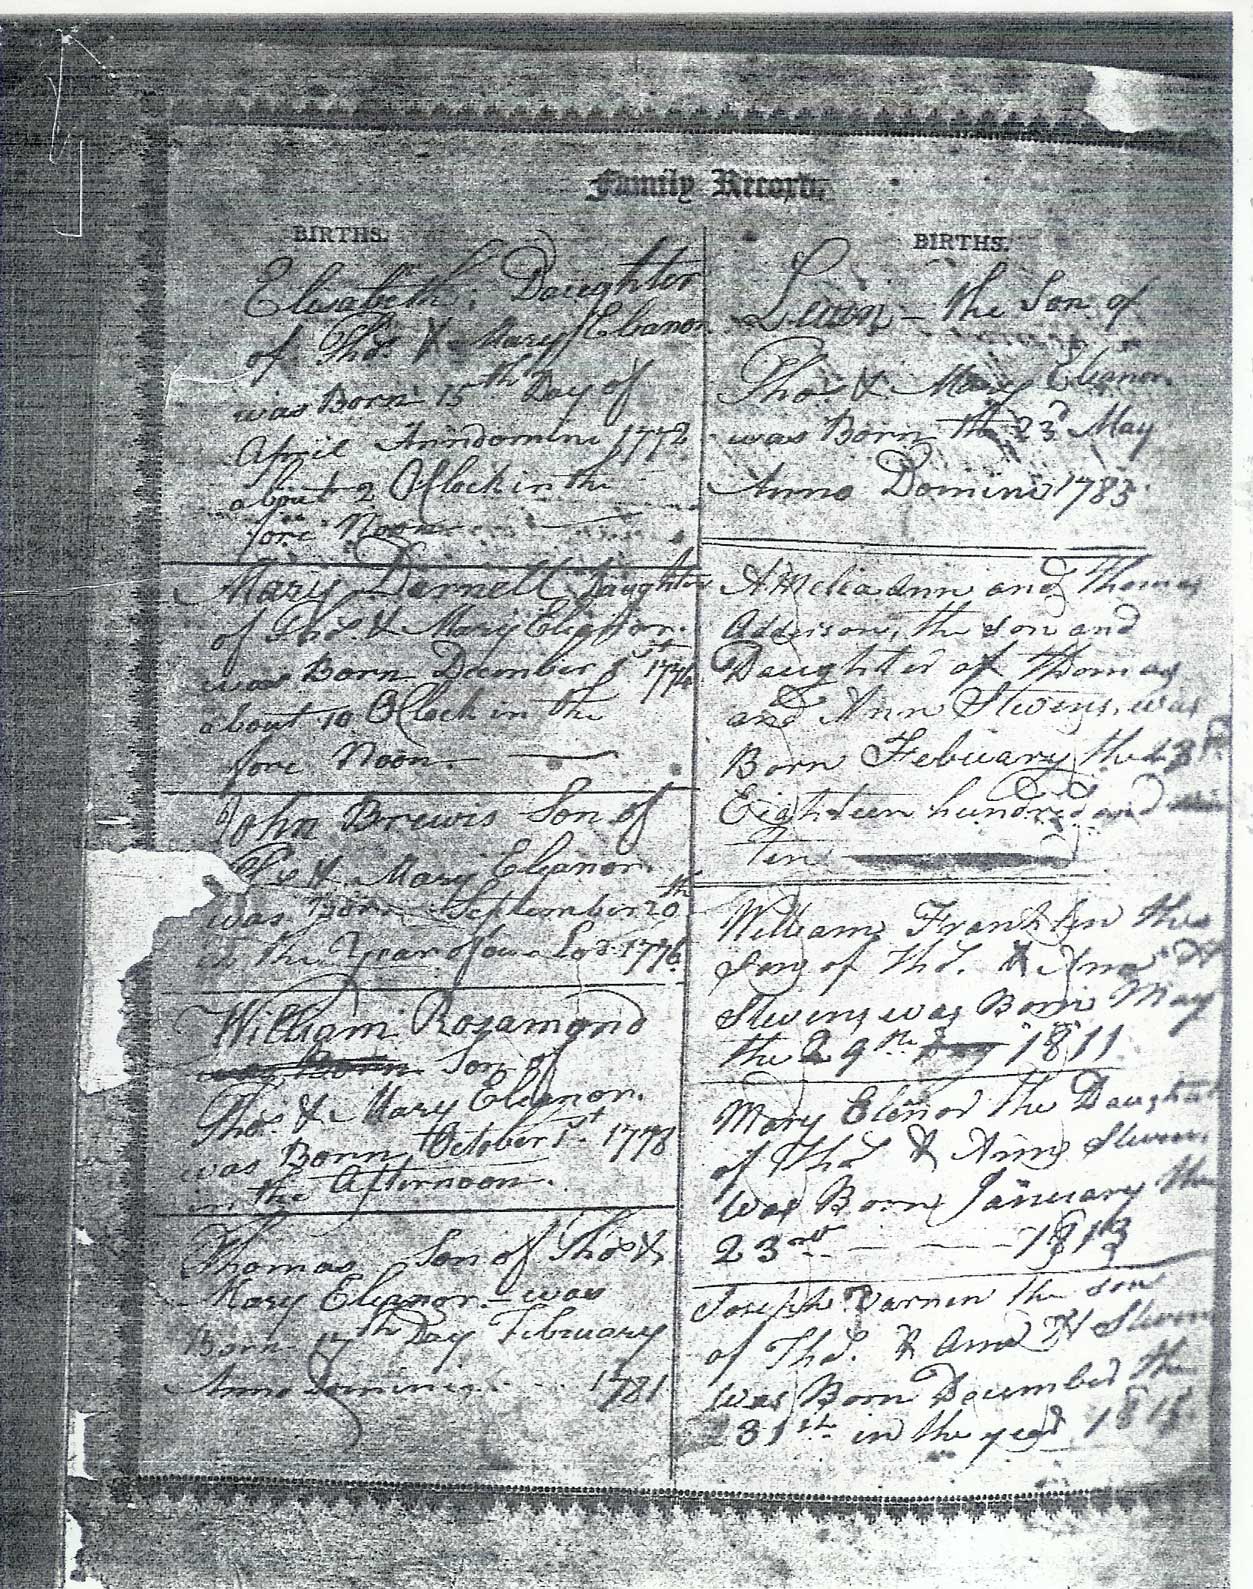 Family Record.
BIRTHS.
Elisabeth; Daughter
of Thos. & Mary Eleanor
was Born 15th Day of
April Anndomini 1772
about 2 OClock in the
fore Noon
Mary Darnell Daughter
of Thos. & Mary Eleanor.
was Born December 1st 1774
about 10 OClock in the
fore Noon.
John Brewis Son of
Thos & Mary Eleanor
was Born September 20th
in the Year of our Lod 1776
William Rosamond
was Born Son of
Thos. & Mary Eleanor.
was Born October 1st. 1778
in the Afternoon.
Thomas Son of Thos &
Mary Eleanor - was
Born 17th Day February
Anno Domini 1781
BIRTHS.
the Son of
Thos & Mary Eleanor
was Born the 23d May
Anno Domini 1783
Amelia Ann and Thomas
Addison, the son and
Daughter of Thomas
and Ann Stevens, was
Born February the
Eighteen hundred and
Ten
William Franklin the
Son of Thos. & Ann H
Stevens was Born May
the 29th 1811
Mary Elenor the Daughter
of Thos & Ann Stevens
was Born January the
23rd 1813
Joseph the son
of Thos. & Ann H Stevens
was Born December the
in the year